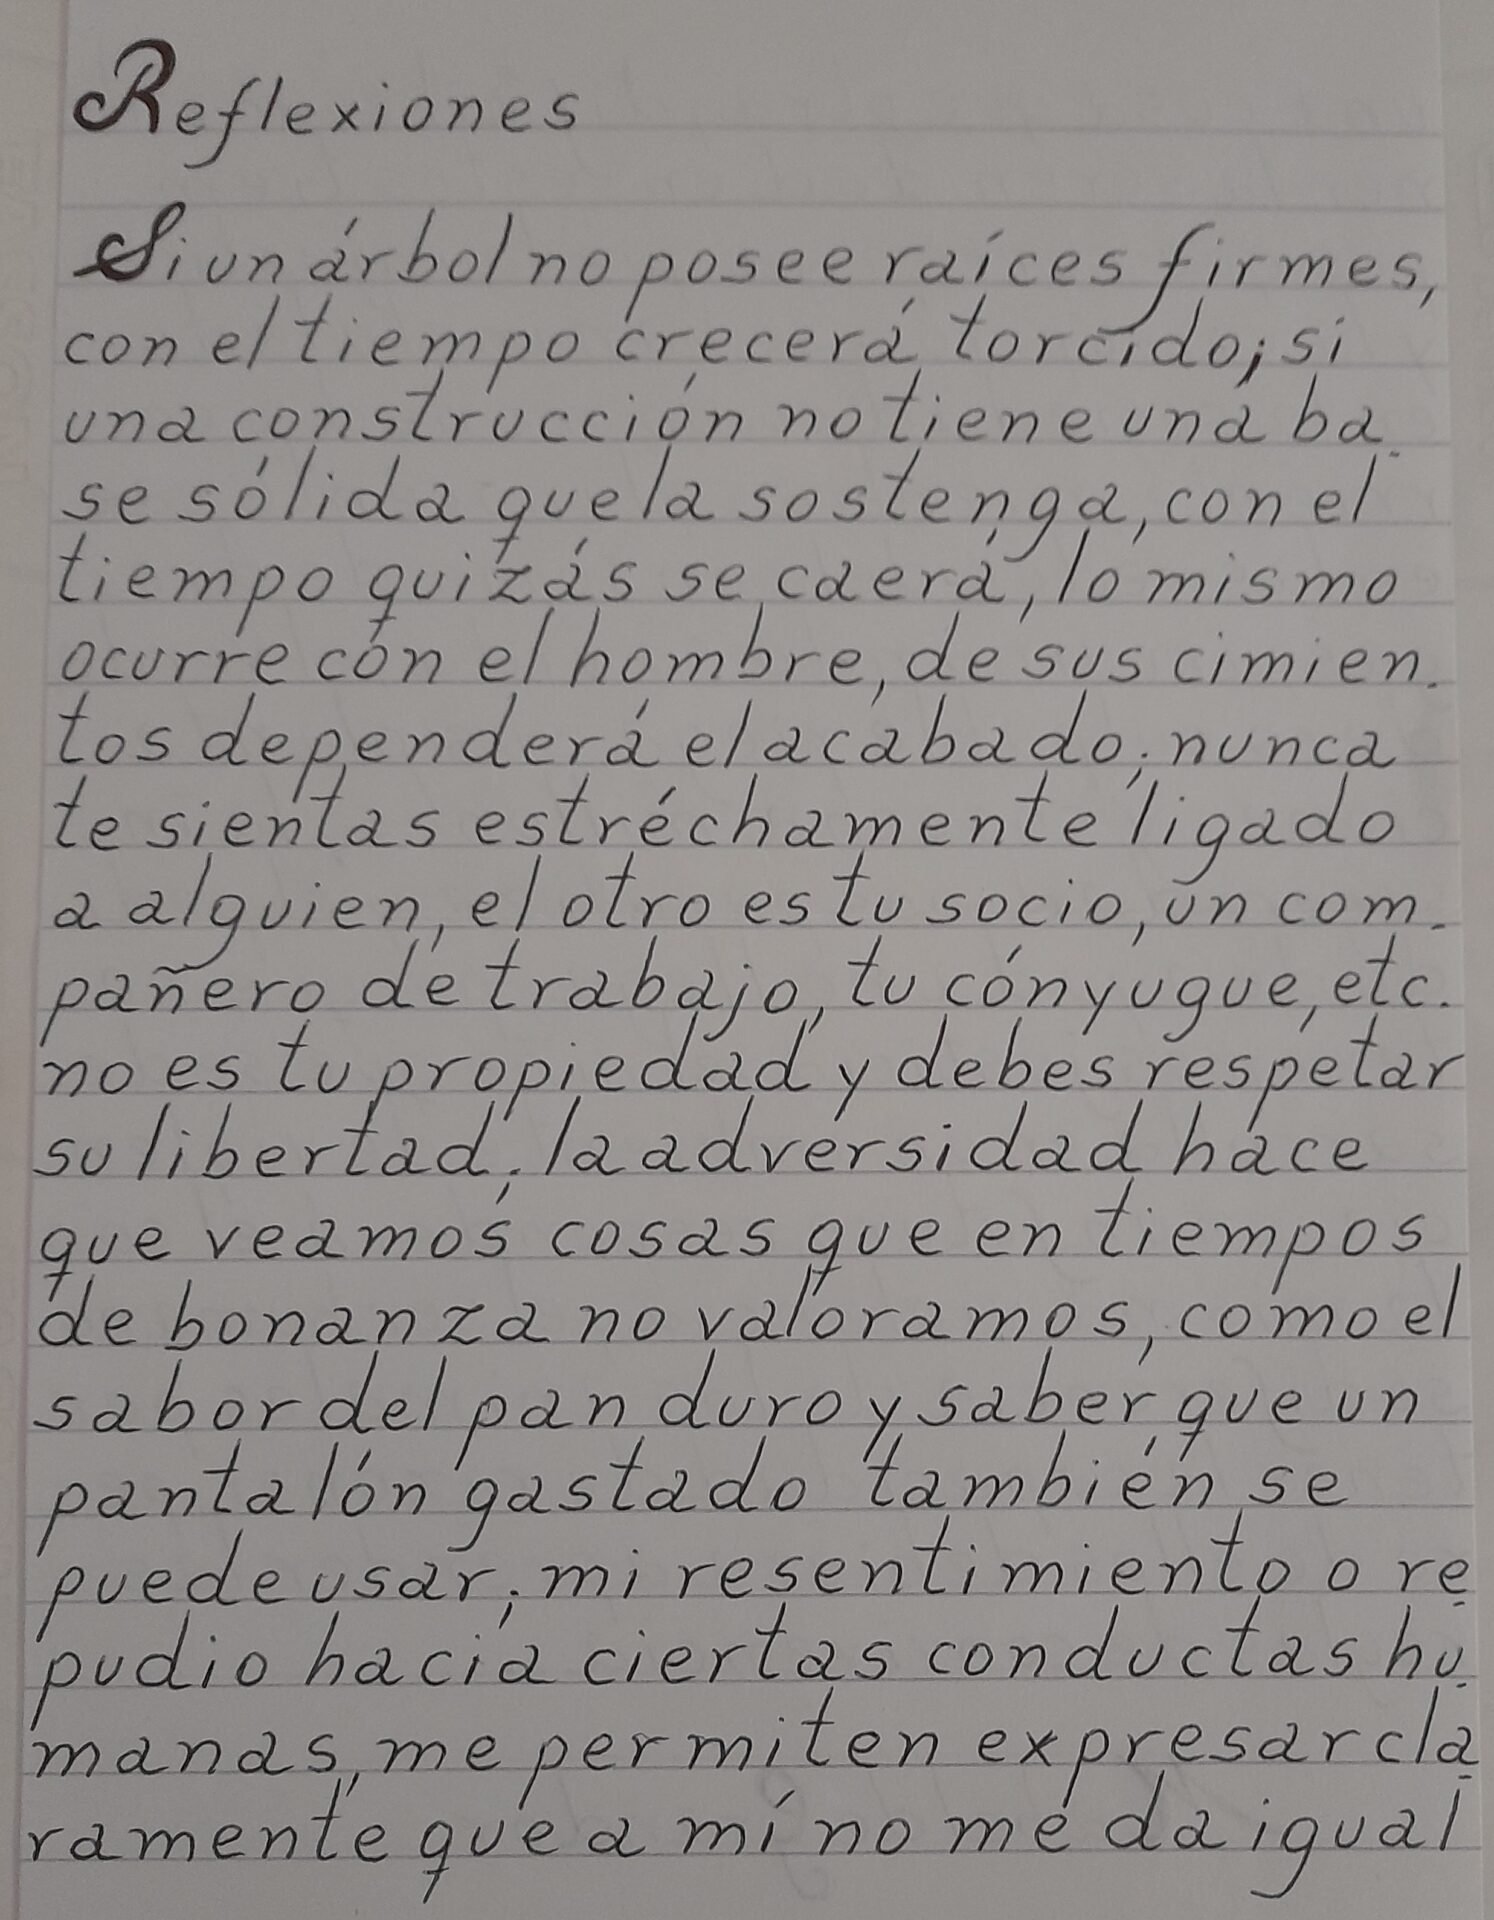 Reflexiones
Si un árbol no posee raíces firmes,
con el tiempo crecerá torcido; si
una construcción no tiene una ba-
se sólida que la sostenga, con el
tiempo quizás se caerá, lo mismo
ocurre con el hombre, de sus cimien-
tos dependerá el acabado; nunca
te sientas estréchamente ligado
a alguien, el otro es tu socio, un com-
pañero de trabajo, tu cónyugue, etc.
no es tu propiedad y debes respetar
su libertad; la adversidad hace
que veamos cosas que en tiempos
de bonanza no valoramos, como el
sabor del pan duro y saber que un
pantalón gastado también se
puede usar; mi resentimiento o re-
pudio hacia ciertas conductas hu-
manas, me permiten expresar cla-
ramente que a mí no me da igual